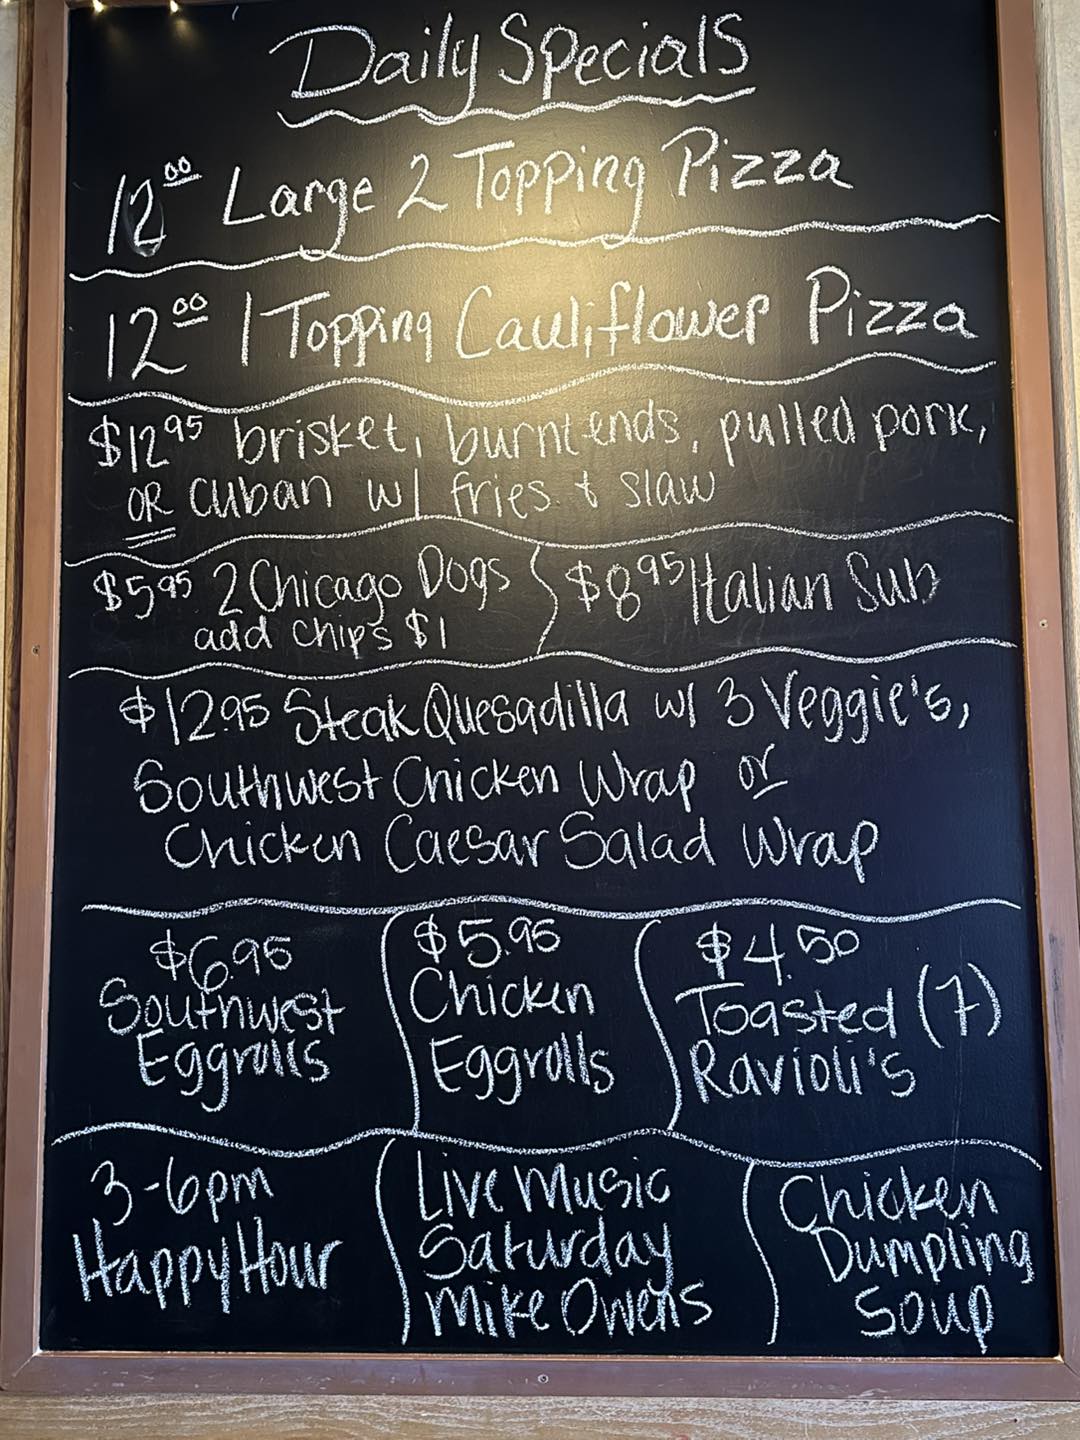 Daily Specials
12.00 Large 2 Topping Pizza
12.00 1 Topping Cauliflower Pizza
$12.95 brisket, burnt ends, pulled pork,
OR cuban w/ fries & slaw
$5.95 2 Chicago Dogs
add chips $1
$8.95 Italian Sub
$12.95 Steak Quesadilla w/ 3 Veggie's,
Southwest Chicken Wrap or
Chicken Caesar Salad Wrap
$6.95
Southwest
Eggrolls
$5.95
Chicken
Eggrolls
$4.50
Toasted (7)
Ravioli's
3-6pm
Happy Hour
Live Music
Saturday
Mike Owens
Chicken
Dumpling
Soup